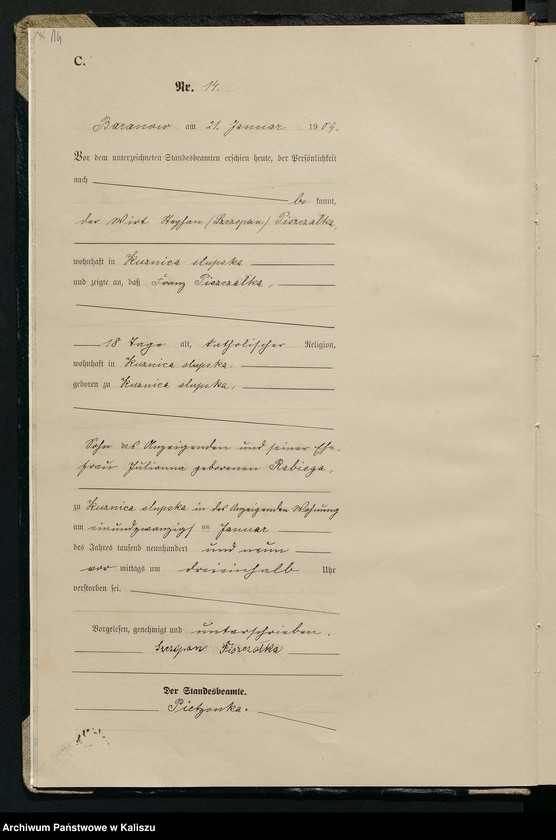 14
C.
Nr. 14.
Baranow am 21. Januar 1909.
Vor dem unterzeichneten Standesbeamten erschien heute, der Persönlichkeit
nach
be kannt,
der Wirt Stephan (Szczepan) Piszczałka,
wohnhaft in Kuznica slupska
und zeigte an, daß Franz Piszczałka,
18 Tage alt, katholischer Religion,
wohnhaft in Kuznica slupska,
geboren zu Kuznica slupska,
Sohn des Anzeigenden und seiner Ehe-
frau Julianna geborenen Rabiega,
zu Kuznica slupska in des Anzeigenden Wohnung
am einundzwanzigsten Januar
des Jahres tausend neunhundert und neun
vor mittags um dreieinhalb Uhr
verstorben sei.
Vorgelesen, genehmigt und unterschrieben.
Szczepan Piszczałka
Der Standesbeamte.
Pietzonka.
Archiwum Państwowe w Kaliszu